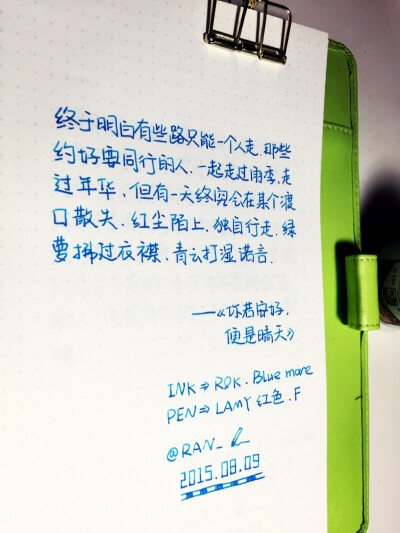 终于明白有些路只能一个人走.那些
约好要同行的人.一起走过雨季,走
过年华.但有一天终究会在某个渡
口散失.红尘陌上.独自行走.绿
萝拂过衣襟.青云打湿诺言.
——《你若安好,
便是晴天》
INK⇒ R&K. Blue mare
PEN⇒ LAMY 红色.F
@RAN_
2015.08.09